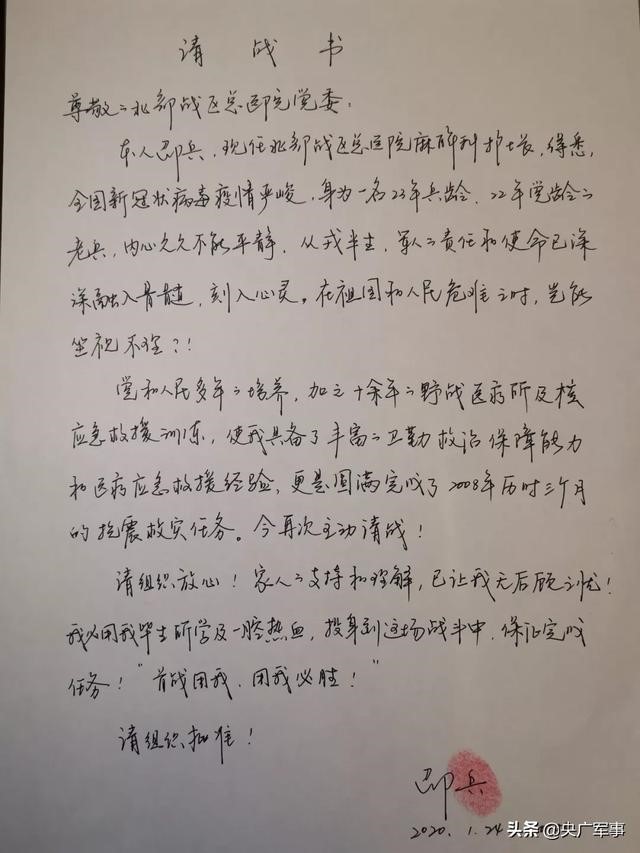 请战书
尊敬的北部战区总医院党委:
本人邵兵,现任北部战区总医院麻醉科护士长,得悉,
全国新冠状病毒疫情严峻,身为一名23年兵龄,22年党龄的
老兵,内心久久不能平静,从戎半生,军人的责任和使命已深
深融入骨髓,刻入心灵。在祖国和人民危难之时,岂能
坐视不理?!
党和人民多年的培养,加之十余年的野战医疗所及核
应急救援训练,使我具备了丰富的卫勤救治保障能力
和医疗应急救援经验,更是圆满完成了2008年历时三个月
的抗震救灾任务。今再次主动请战!
请组织放心!家人的支持和理解,已让我无后顾之忧!
我必用我毕生所学及一腔热血,投身到这场战斗中,保证完成
任务!“首战用我,用我必胜!”
请组织批准!
邵兵
2020.1.24
头条@央广军事